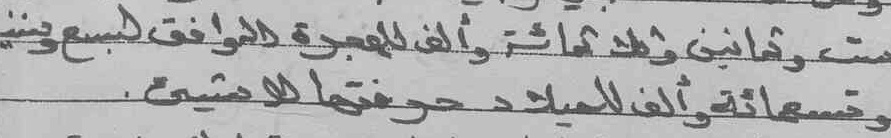 ست وثمانين وثلاثمائة وألف للهجرة الموافق لسبع وستين
وتسعمائة وألف للميلاد